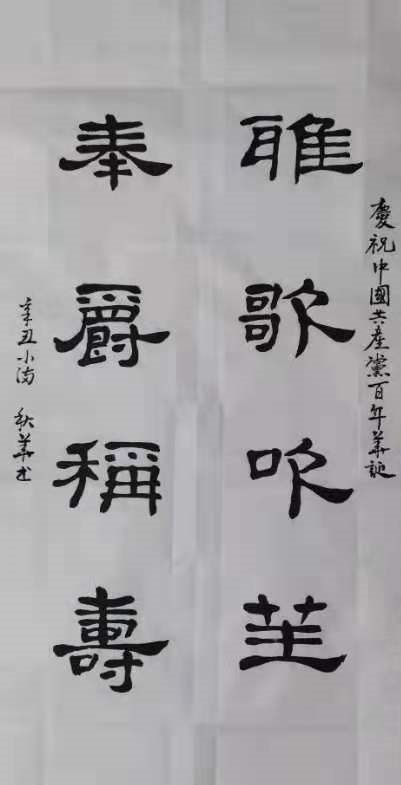 慶祝中國共產黨百年華誕
雅歌吹笙
奉爵稱壽
辛丑小滿 秋華書